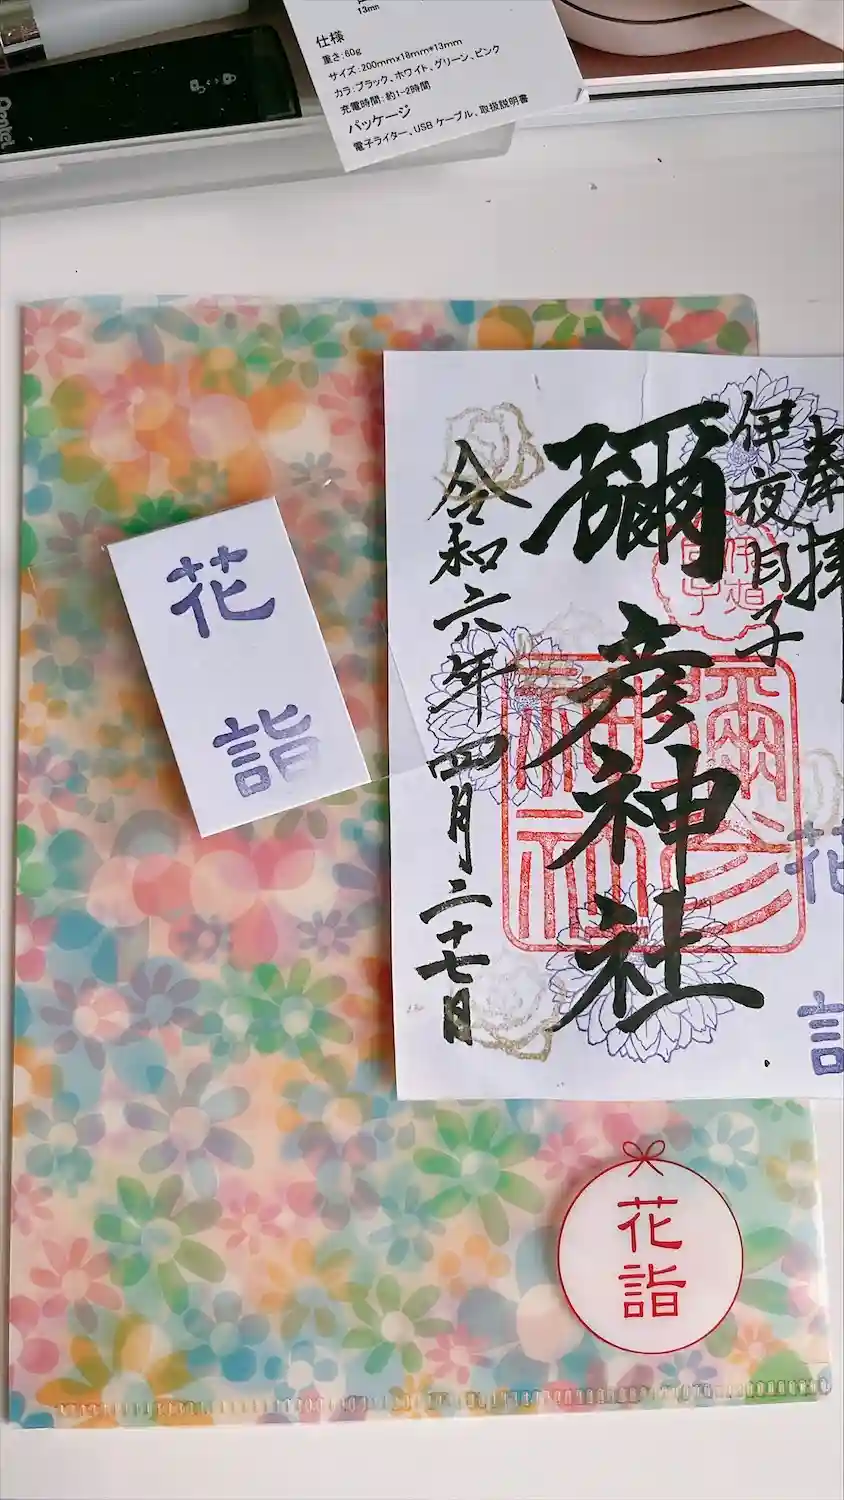 13mm
仕様
重さ:60g
サイズ:200mm×18mm*13mm
カラ:ブラック、ホワイト、グリーン、ピンク
充電時間:約1-2時間
パッケージ
電子ライター、USB ケーブル、取扱説明書
Pentel
奉拝
伊夜日子
彌彦神社
令和六年四月二十七日
彌彦神社
花詣
花詣
花詣